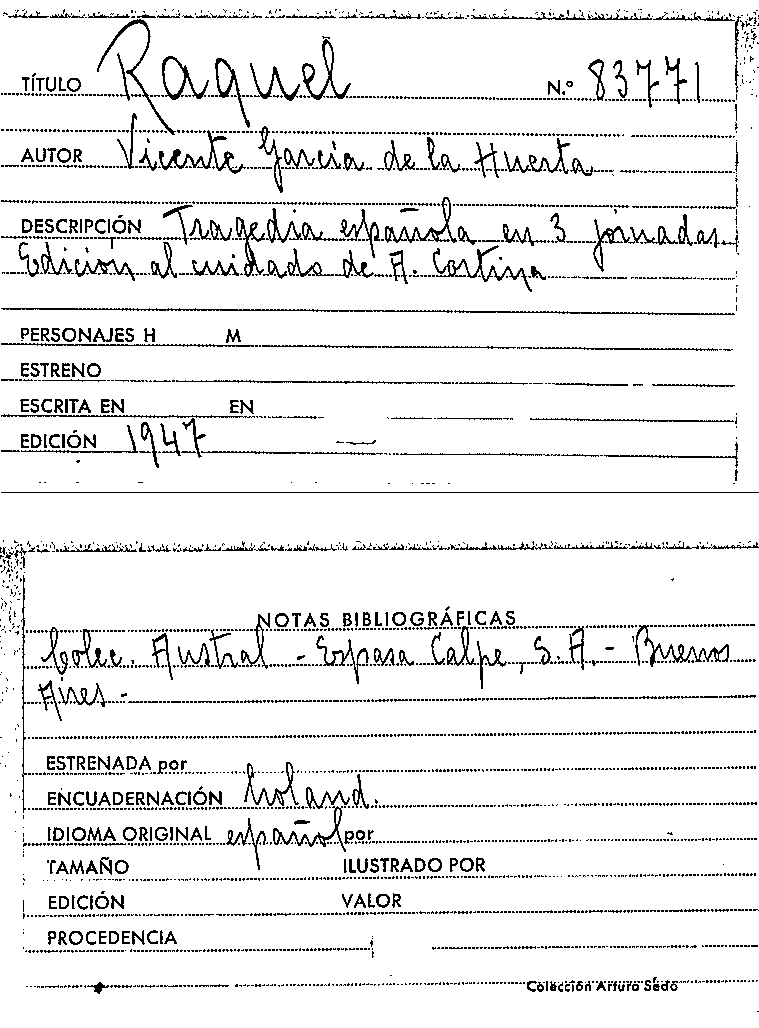 TÍTULO Raquel N.º 83771
AUTOR Vicente García de la Huerta
DESCRIPCIÓN Tragedia española en 3 jornadas.
Edición al cuidado de A. Cortina
PERSONAJES H M
ESTRENO
ESCRITA EN EN
EDICIÓN 1947
NOTAS BIBLIOGRÁFICAS
Colec. Austral - Espasa Calpe, S.A. - Buenos
Aires -
ESTRENADA por
ENCUADERNACIÓN holand.
IDIOMA ORIGINAL español por
TAMAÑO ILUSTRADO POR
EDICIÓN VALOR
PROCEDENCIA
Colección Arturo Sedó